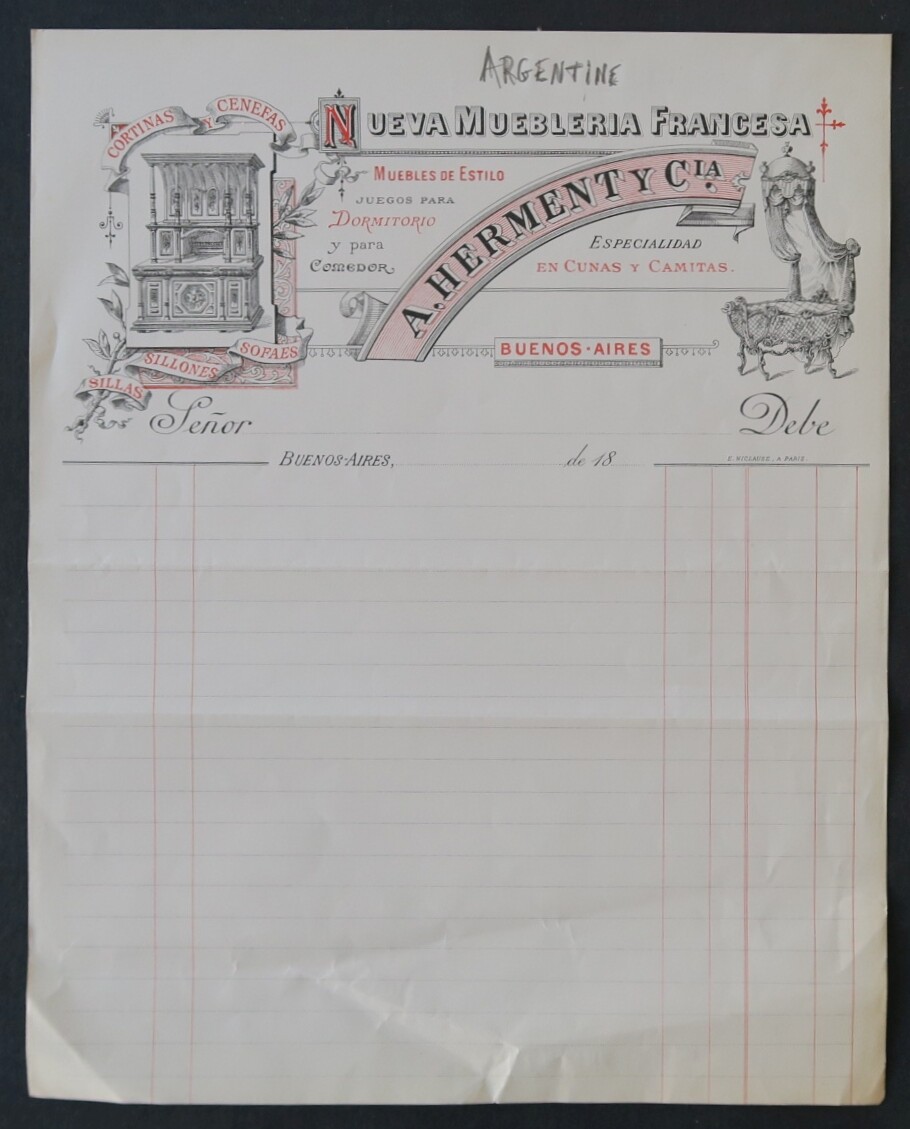 ARGENTINE
NUEVA MUEBLERIA FRANCESA
CORTINAS Y CENEFAS
MUEBLES DE ESTILO
JUEGOS PARA
DORMITORIO
y para
COMEDOR
A. HERMENT Y CIA.
ESPECIALIDAD
EN CUNAS Y CAMITAS.
BUENOS-AIRES
SILLAS SILLONES SOFAES
Señor
Debe
BUENOS-AIRES, de 18
E. NICLAUSE, A PARIS.